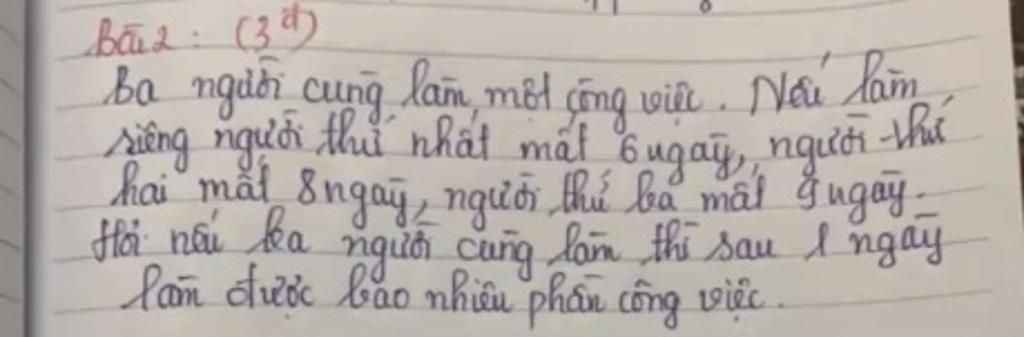 Bài 2: (3đ)
Ba người cùng làm một công việc. Nếu làm
riêng người thứ nhất mất 6 ngày, người thứ
hai mất 8 ngày, người thứ ba mất 9 ngày.
Hỏi nếu ba người cùng làm thì sau 1 ngày
làm được bao nhiêu phần công việc.